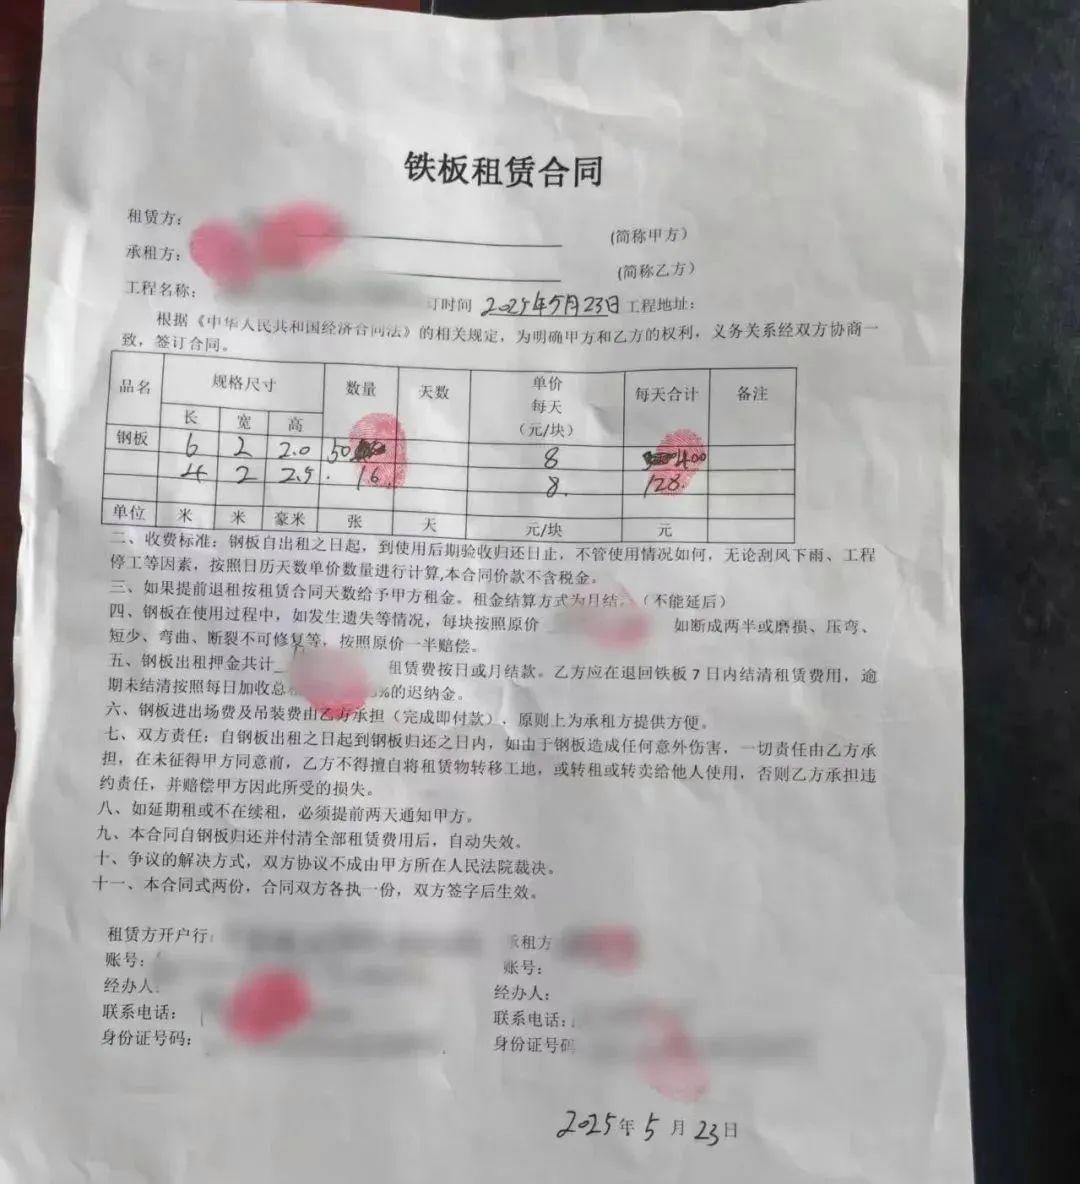 铁板租赁合同
租赁方：
(简称甲方）
承租方：
(简称乙方）
工程名称：
订时间 2025年5月23日 工程地址：
根据《中华人民共和国经济合同法》的相关规定，为明确甲方和乙方的权利，义务关系经双方协商一
致，签订合同。
品名 规格尺寸 数量 天数 单价 每天（元/块） 每天合计 备注
长 宽 高
钢板 6 2 2.0 50 8 400
4 2 2.5 16 8. 128.
单位 米 米 豪米 张 天 元/块 元
二、收费标准：钢板自出租之日起，到使用后期验收归还日止，不管使用情况如何，无论刮风下雨、工程
停工等因素，按照日历天数单价数量进行计算,本合同价款不含税金。
三、如果提前退租按租赁合同天数给予甲方租金。租金结算方式为月结。（不能延后）
四、钢板在使用过程中，如发生遗失等情况，每块按照原价 如断成两半或磨损、压弯、
短少、弯曲、断裂不可修复等，按照原价一半赔偿。
五、钢板出租押金共计 租赁费按日或月结款。乙方应在退回铁板 7 日内结清租赁费用，逾
期未结清按照每日加收总 %的迟纳金。
六、钢板进出场费及吊装费由乙方承担（完成即付款）、原则上为承租方提供方便。
七、双方责任：自钢板出租之日起到钢板归还之日内，如由于钢板造成任何意外伤害，一切责任由乙方承
担，在未征得甲方同意前，乙方不得擅自将租赁物转移工地，或转租或转卖给他人使用，否则乙方承担违
约责任，并赔偿甲方因此所受的损失。
八、如延期租或不在续租，必须提前两天通知甲方。
九、本合同自钢板归还并付清全部租赁费用后，自动失效。
十、争议的解决方式，双方协议不成由甲方所在人民法院裁决。
十一、本合同式两份，合同双方各执一份，双方签字后生效。
租赁方开户行：
账号：
经办人：
联系电话：
身份证号码：
承租方
账号：
经办人：
联系电话：
身份证号码
2025年 5 月 23日